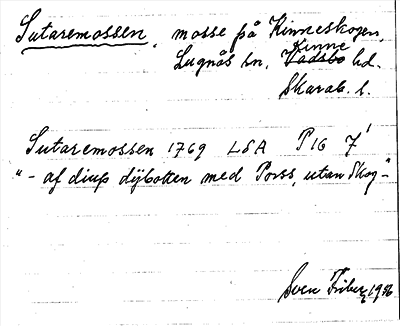 Sutaremossen, mosse på Kinneskogen,
Kinne
Lugnås sn, Vadsbo hd.
Skarab. l.
Sutaremossen 1769 LSA P16 7¹
"- af diup dÿbotten med Porss, utan Skog -"
Sven Friberg 1976